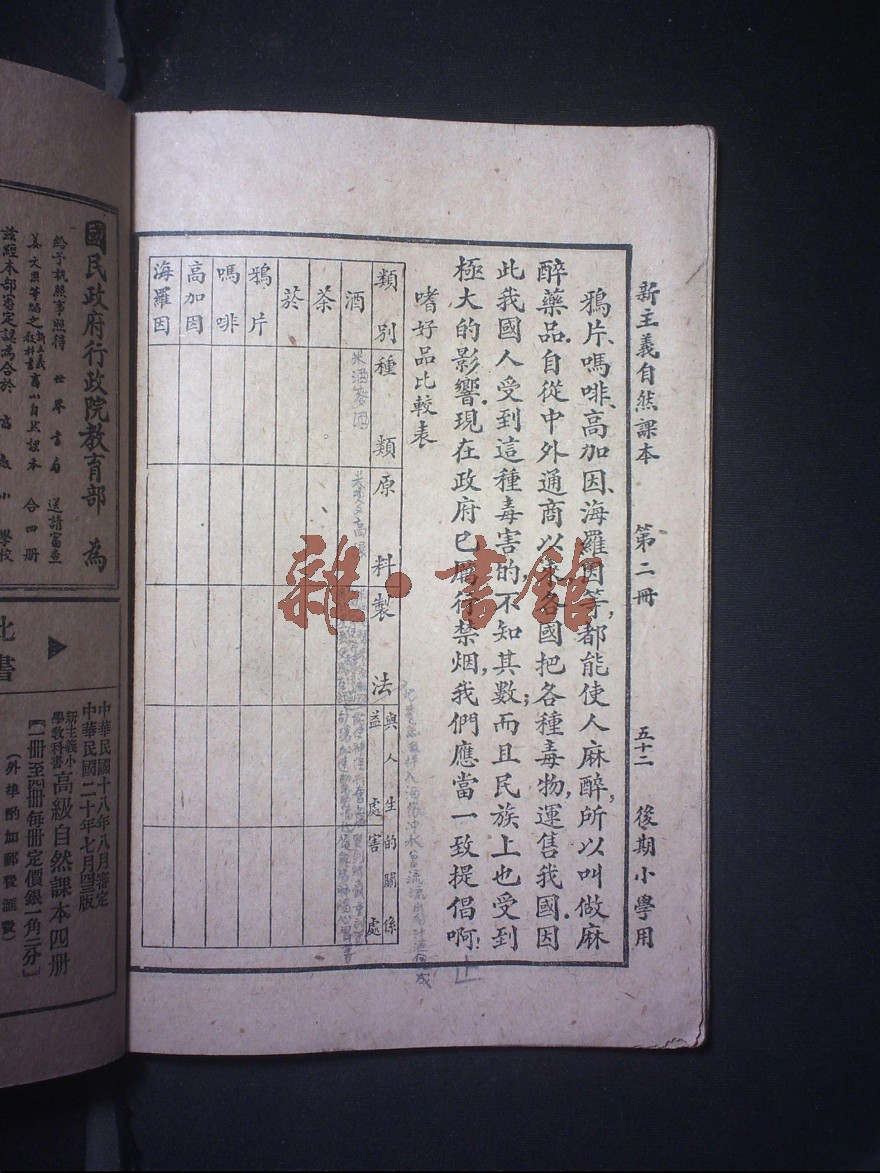 新主義自然課本 第二冊 五十二 後期小學用
鴉片、嗎啡、高加因、海羅因等,都能使人麻醉,所以叫做麻
醉藥品。自從中外通商以來,各國把各種毒物,運售我國。因
此我國人受到這種毒害的,不知其數;而且民族上也受到
極大的影響。現在政府已厲行禁烟,我們應當一致提倡啊!
嗜好品比較表
類別 種類 原料 製法 與人生的關係 益處 害處
酒 果酒 米麥高粱
茶
菸
鴉片
嗎啡
高加因
海羅因
雜·書館
國民政府行政院教育部 為
給予執照事照得 世界書局 送請審查
新主義教科書高小自然課本 合四冊
茲經本部審定認為合於 高級小學校
此
書
中華民國十八年八月審定
中華民國二十年七月四三版
新主義小學教科書 高級自然課本四册
【一冊至四冊每冊定價銀一角二分】
(外埠酌加郵費滙費)